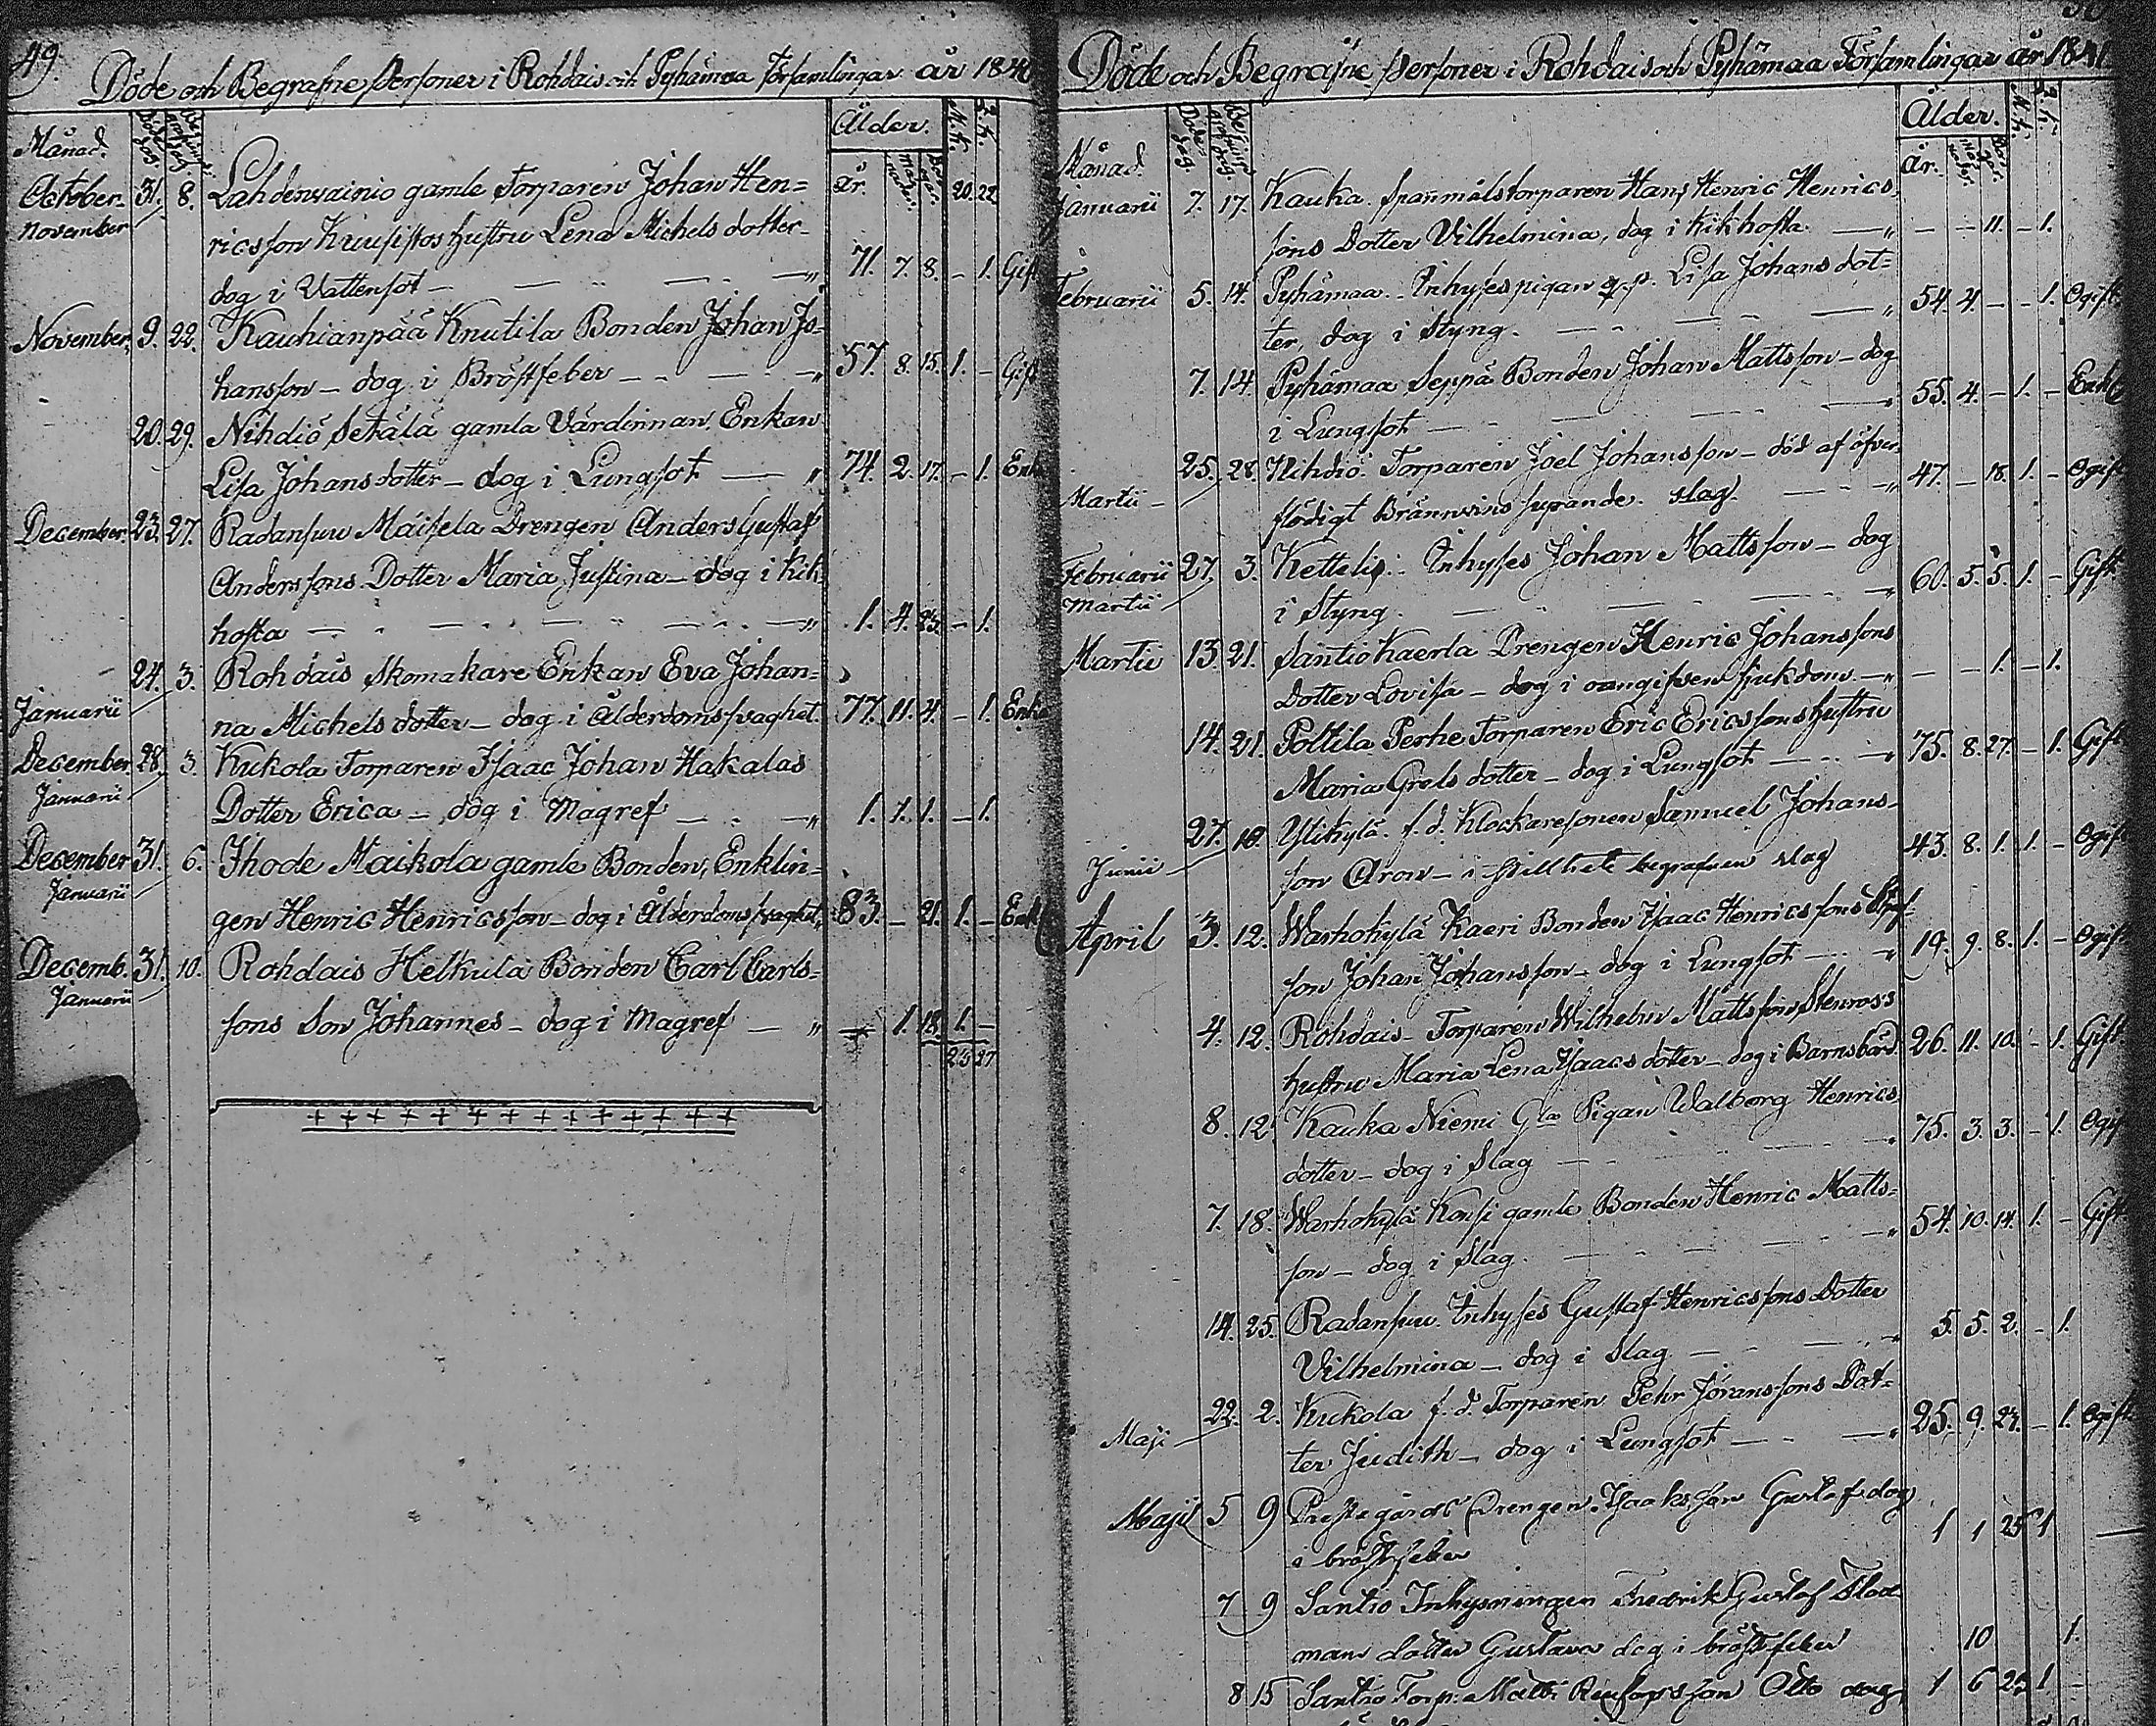 49.
Döde och Begrafne Personer i Rohdais och Pyhämaa Församlingar år 1840
Månad. Döds dag. Begrafnings dag. Ålder.
år. Månader. Dagar. M.k. Q.k.
20. 22
October. 31. 8. Lahdenvainio gamle Torparen Johan Hen=
November ricsson Kuusistos hustru Lena Michels dotter
dog i Vattensot — 71. 7. 8. – 1. Gift
November. 9. 22. Kauhianpää Knutila Bonden Johan Jo=
hansson – dog i Bröstfeber — 57. 8. 15. 1. – Gift
20. 29. Nihdiö Setälä gamla Värdinnan Enkan
Lisa Johansdotter – dog i Lungsot — 74. 2. 17. – 1. Enka
December. 23. 27. Radansuu Maisela Drengen Anders Gustaf
Anderssons Dotter Maria Justina – dog i Kik
hosta — 1. 4. 23. – 1.
24. 3. Rohdais Skomakare Enkan Eva Johan=
Januarii na Michels dotter – dog i Ålderdomssvaghet. 77. 11. 4. – 1. Enka
December. 28. 3. Kukola Torparen Isaac Johan Hakalas
Januarii Dotter Erica – dog i Magref — 1. 1. 1. – 1.
December 31. 6. Ihode Maikola gamle Bonden, Enklin=
Januarii gen Henric Henricsson – dog i Ålderdomssvaghet 83. – 21. 1. – Enkl
Decemb. 31. 10. Rohdais Helkula Bonden Carl Carls=
Januarii sons Son Johannes – dog i Magref — – 1. 18. 1. –
23 27
+ + + + + + + + + + + + + +
Döde och Begrafne Personer i Rohdais och Pyhämaa Församlingar år 1841
Månad. Döds dag. Begrafnings dag. Ålder.
År. Månader. Dagar. M.k. Q.k.
Januarii 7. 17. Kauka Spanmålstorparen Hans Henric Henrics
sons Dotter Vilhelmina, dog i Kikhosta. — – – 11. – 1.
Februarii 5. 14. Pyhämaa Inhyses pigan Lisa Johans dot=
ter, dog i Styng. — 54. 4. – – 1. Ogift
7. 14. Pyhämaa Seppä Bonden Johan Mattsson – dog
i Lungsot — 55. 4. – 1. – Enkl
25. 28. Nihdiö Torparen Joel Johansson – död af öfver
Martii – flödigt Brännvins supande. slag. — 47. – 18. 1. – Ogift
Februarii 27. 3. Kettelis. Inhyses Johan Mattsson – dog
Martii i Styng. — 60. 5. 5. 1. – Gift
Martii 13. 21. Santio Kaerla Drengen Henric Johanssons
Dotter Lovisa – dog i oangifven sjukdom. — – – 1. – 1.
14. 21. Polttila Perhe Torparen Eric Ericssons hustru
Maria Grels dotter – dog i Lungsot — 75. 8. 27. – 1. Gift
27. 10. Ylikylä. f.d. Klockaresonen Samuel Johans-
Junii – son Aron – i stillhet begrafven slag 43. 8. 1. 1. – Ogift
April 3. 12. Warhokylä Kaeri Bonden Isaac Henricssons Styf-
son Johan Johansson – dog i Lungsot — 19. 9. 8. 1. – Ogift
4. 12. Rohdais Torparen Wilhelm Mattsson Stenross
hustru Maria Lena Isaacs dotter – dog i Barnsbörd. 26. 11. 10. – 1. Gift
8. 12. Kauka Niemi Gla Pigan Walborg Henrics
dotter – dog i Slag — 75. 3. 3. – 1. Ogift
7. 18. Warhokylä Kousi gamle Bonden Henric Matts=
son – dog i Slag. — 54. 10. 14. 1. – Gift
14. 25. Radansuu Inhyses Gustaf Henricssons Dotter
Vilhelmina – dog i Slag — 5. 5. 2. – 1.
22. 2. Kukola f.d. Torparen Pehr Jöranssons Dot=
Maji – ter Judith – dog i Lungsot — 25. 9. 24. – 1. Ogift
Maji 5 9 Prestegårds Drengen Isaks son Gustaf dog
i bröstfeber 1 1 25 1 —
7 9 Santio Inhysningen Fredrik Gustaf Flod
mans dotter Gustava dog i bröstfeber 10 1.
8 15 Santio Torp. Matti son Otto dog 1 6 25 1 –